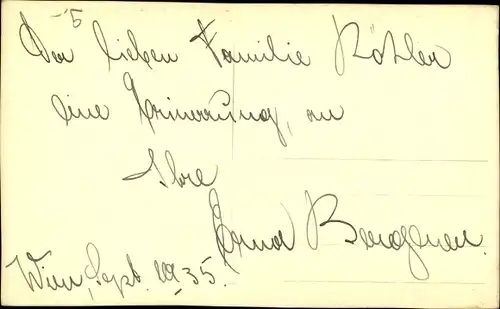 5
Der lieben Familie Köhler
eine Erinnerung, an
Ihre
Erna Bergner.
Wien, Sept. 1935.